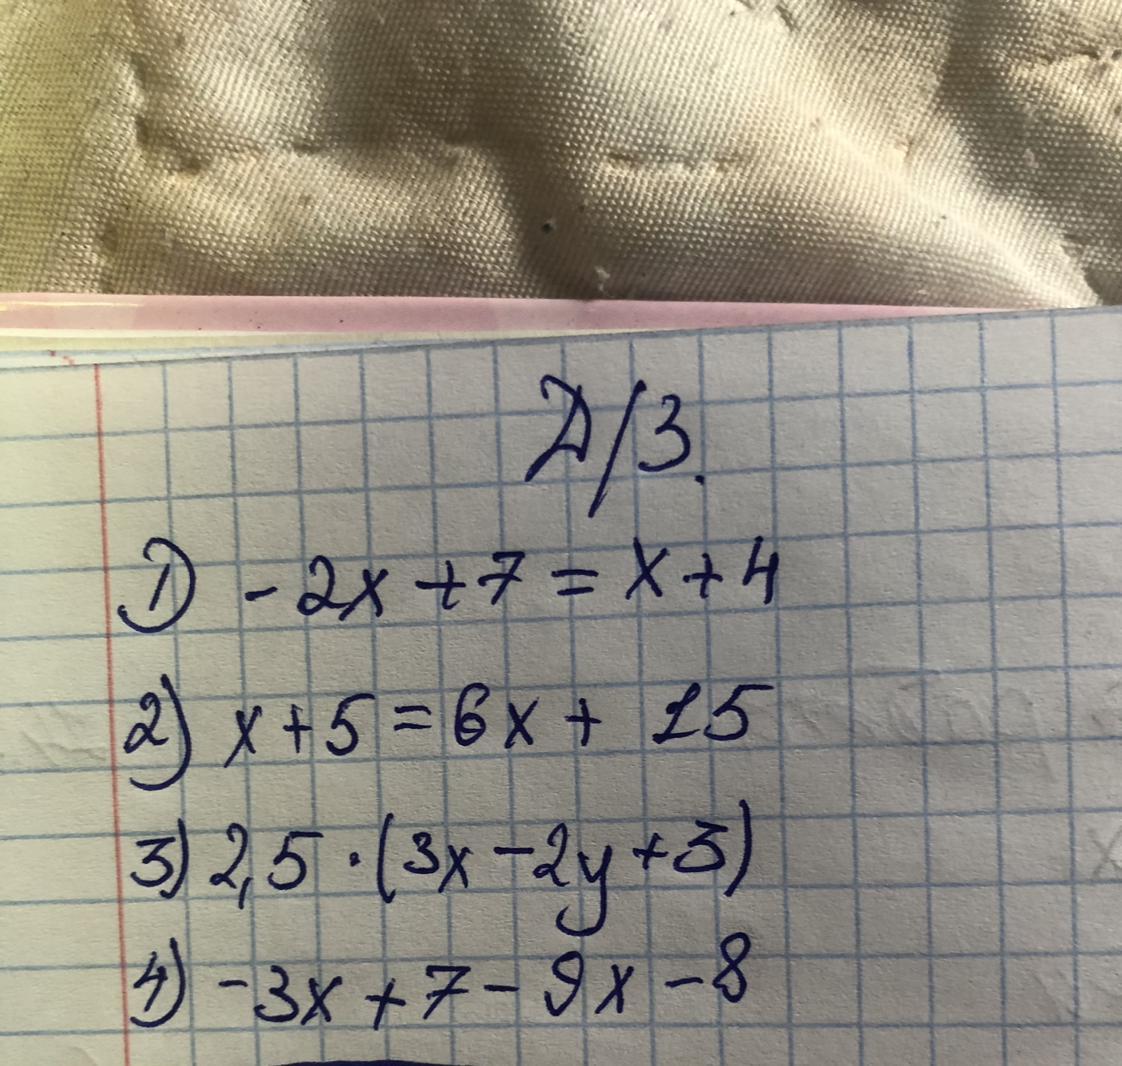 Д/З.
1) - 2x + 7 = x + 4
2) x + 5 = 6x + 15
3) 2,5 · (3x - 2y + 3)
4) - 3x + 7 - 9x - 8